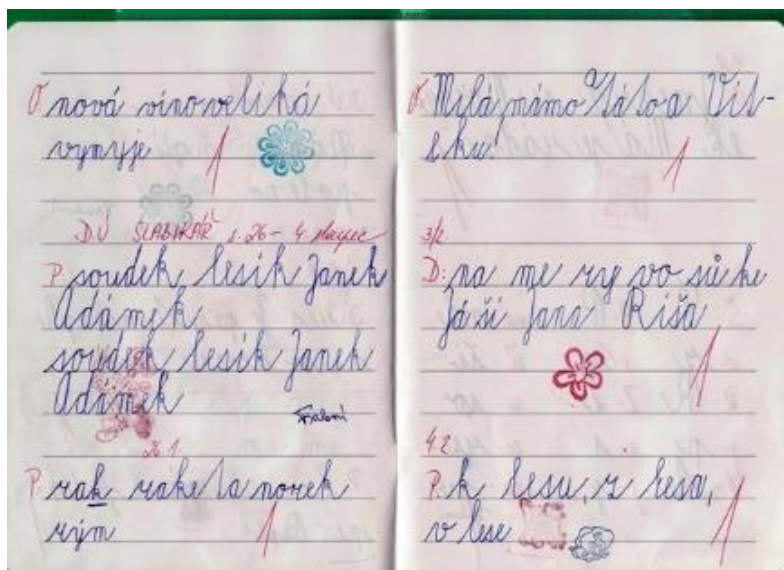 O. nová víno veliká
vymyje 1
D.Ú SLABIKÁŘ s. 26 - 4 sloupec
P. soudek, lesík Janek
Adámek
soudek, lesík Janek
Adámek
26 1
P. rak raketa norek
rým 1
O. Milá mámo Táto a Vít-
ku! 1
3/2
D: na me ry vo sů ke
Já ší Jana Ríša
1
4 2
P. k lesu, z lesa,
v lese 1